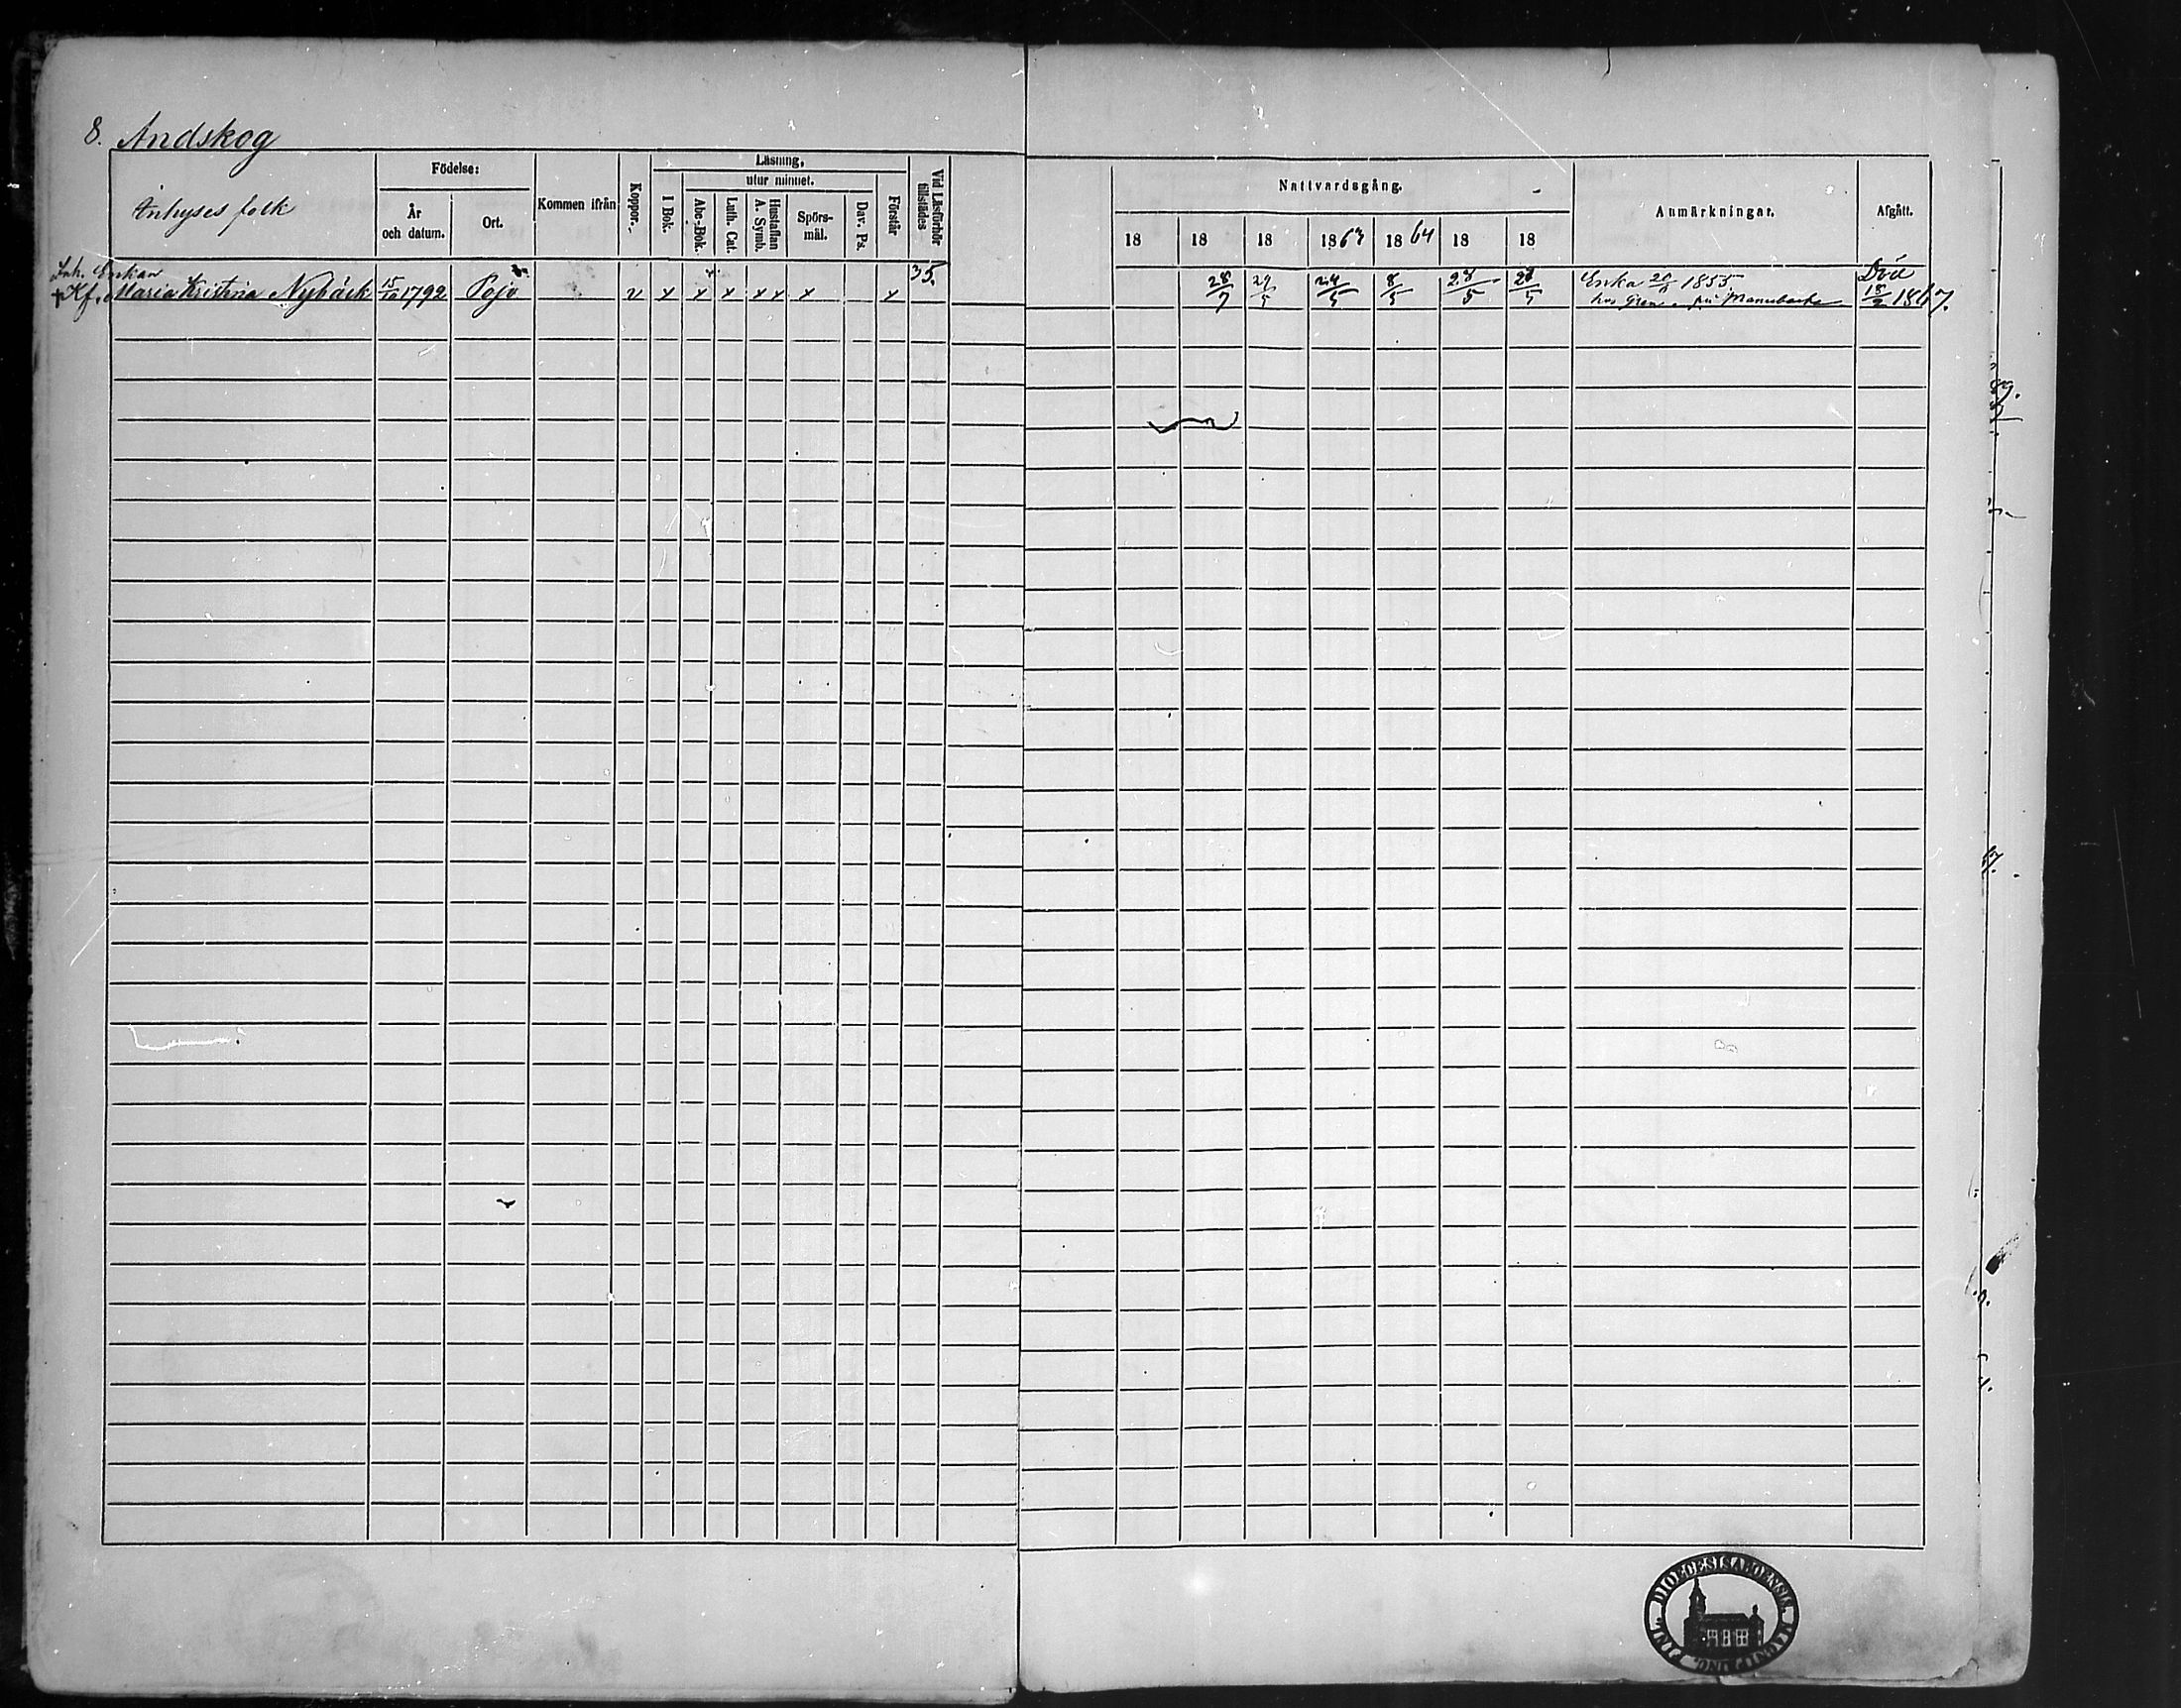 8. Andskog
Inhyses folk
Födelse:
År och datum.
Ort.
Kommen ifrån
Koppor.
Läsning,
utur minnet.
I Bok.
Abc-Bok.
Luth. Cat.
Hustaflan A. Symb.
Spörsmål.
Dav. Ps.
Förstår
Vid Läsförhör tillstädes
Nattvardsgång.
18 18 18 1863 1864 18 18
Anmärkningar.
Afgått.
Inh. Enkan
Maria Kristina Nybäck 15/10 1792 Pojo v x x x x x x x 35.
28/7 29/5 24/5 8/5 28/5 28/5
Enka 1855.
hos på
Död
18/2 1867.
DIOECESIS ABOENSIS. MAGNI PRINC. FINL.